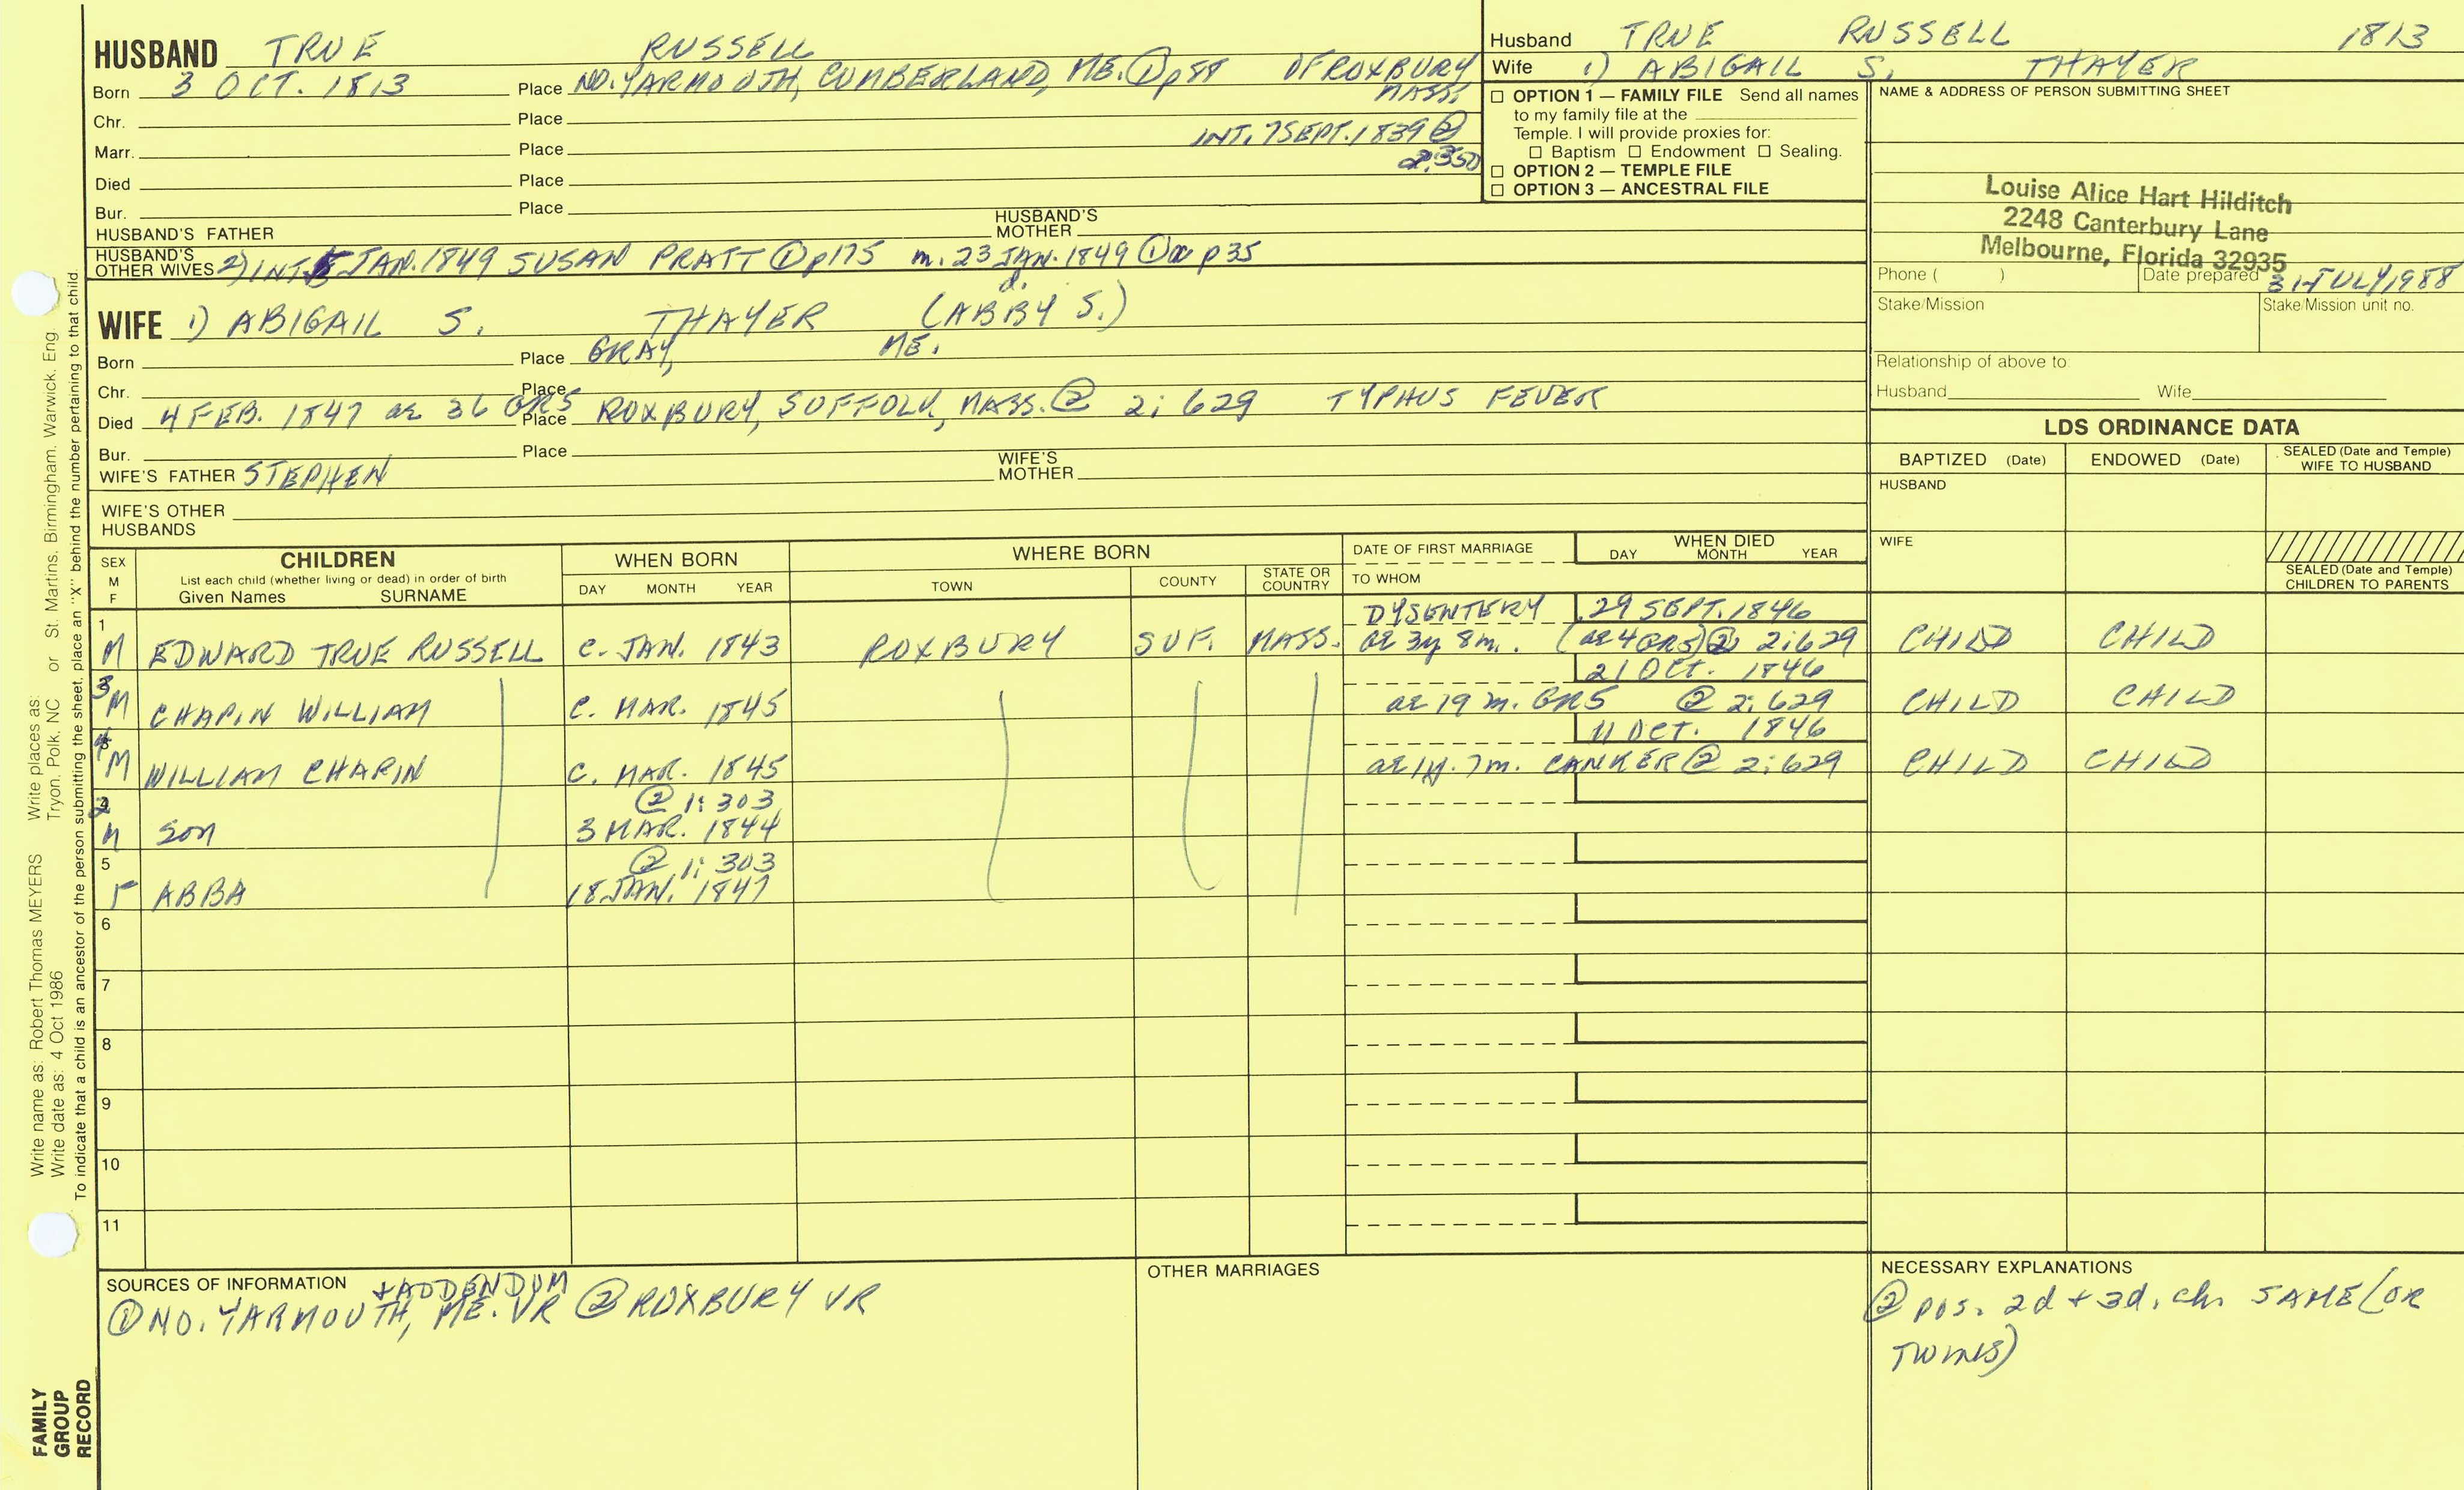 HUSBAND TRUE RUSSELL
Born 3 OCT. 1813 Place NO. YARMOUTH, CUMBERLAND, ME. ① p88 OF ROXBURY
MASS.
Chr. Place
INT. 7 SEPT. 1839 ②
Marr. Place 2:350
Died Place
Bur. Place
HUSBAND'S FATHER HUSBAND'S MOTHER
HUSBAND'S OTHER WIVES 2) INT. JAN. 1849 SUSAN PRATT ① p175 m. 23 JAN. 1849 ① p35
d.
WIFE 1) ABIGAIL S. THAYER (ABBY S.)
Born Place GRAY, ME.
Chr. Place
Died 4 FEB. 1847 ae 36 GR5 Place ROXBURY, SUFFOLK, MASS. ② 2:629 TYPHUS FEVER
Bur. Place
WIFE'S FATHER STEPHEN WIFE'S MOTHER
WIFE'S OTHER HUSBANDS
Husband TRUE RUSSELL 1813
Wife 1) ABIGAIL S. THAYER
☐ OPTION 1 — FAMILY FILE Send all names
to my family file at the
Temple. I will provide proxies for:
☐ Baptism ☐ Endowment ☐ Sealing.
☐ OPTION 2 — TEMPLE FILE
☐ OPTION 3 — ANCESTRAL FILE
NAME & ADDRESS OF PERSON SUBMITTING SHEET
Louise Alice Hart Hilditch
2248 Canterbury Lane
Melbourne, Florida 32935
Phone ( ) Date prepared 31 JULY 1988
Stake/Mission Stake/Mission unit no.
Relationship of above to:
Husband Wife
LDS ORDINANCE DATA
BAPTIZED (Date) ENDOWED (Date) SEALED (Date and Temple) WIFE TO HUSBAND
HUSBAND
WIFE
SEALED (Date and Temple) CHILDREN TO PARENTS
SEX M F
CHILDREN
List each child (whether living or dead) in order of birth
Given Names SURNAME
WHEN BORN
DAY MONTH YEAR
WHERE BORN
TOWN COUNTY STATE OR COUNTRY
DATE OF FIRST MARRIAGE
TO WHOM
WHEN DIED
DAY MONTH YEAR
1 DYSENTERY 29 SEPT. 1846
M EDWARD TRUE RUSSELL C. JAN. 1843 ROXBURY SUF. MASS. ae 3y 8m. (ae 4 GR5) ② 2:629 CHILD CHILD
3 21 OCT. 1846
M CHAPIN WILLIAM C. MAR. 1845 ae 19 m. GR5 ② 2:629 CHILD CHILD
4 11 OCT. 1846
M WILLIAM CHAPIN C. MAR. 1845 ae 1y. 7m. CANKER ② 2:629 CHILD CHILD
2 ② 1:303
M SON 3 MAR. 1844
5 ② 1:303
F ABBA 18 JAN. 1847
6
7
8
9
10
11
SOURCES OF INFORMATION + ADDENDUM
① NO. YARMOUTH, ME. VR ② ROXBURY VR
OTHER MARRIAGES
NECESSARY EXPLANATIONS
② pos. 2d + 3d. ch. SAME (OR
TWINS)
Write name as: Robert Thomas MEYERS Write places as:
Write date as: 4 Oct 1986 Tryon, Polk, NC or St. Martins, Birmingham, Warwick, Eng
To indicate that a child is an ancestor of the person submitting the sheet, place an "X" behind the number pertaining to that child.
FAMILY
GROUP
RECORD